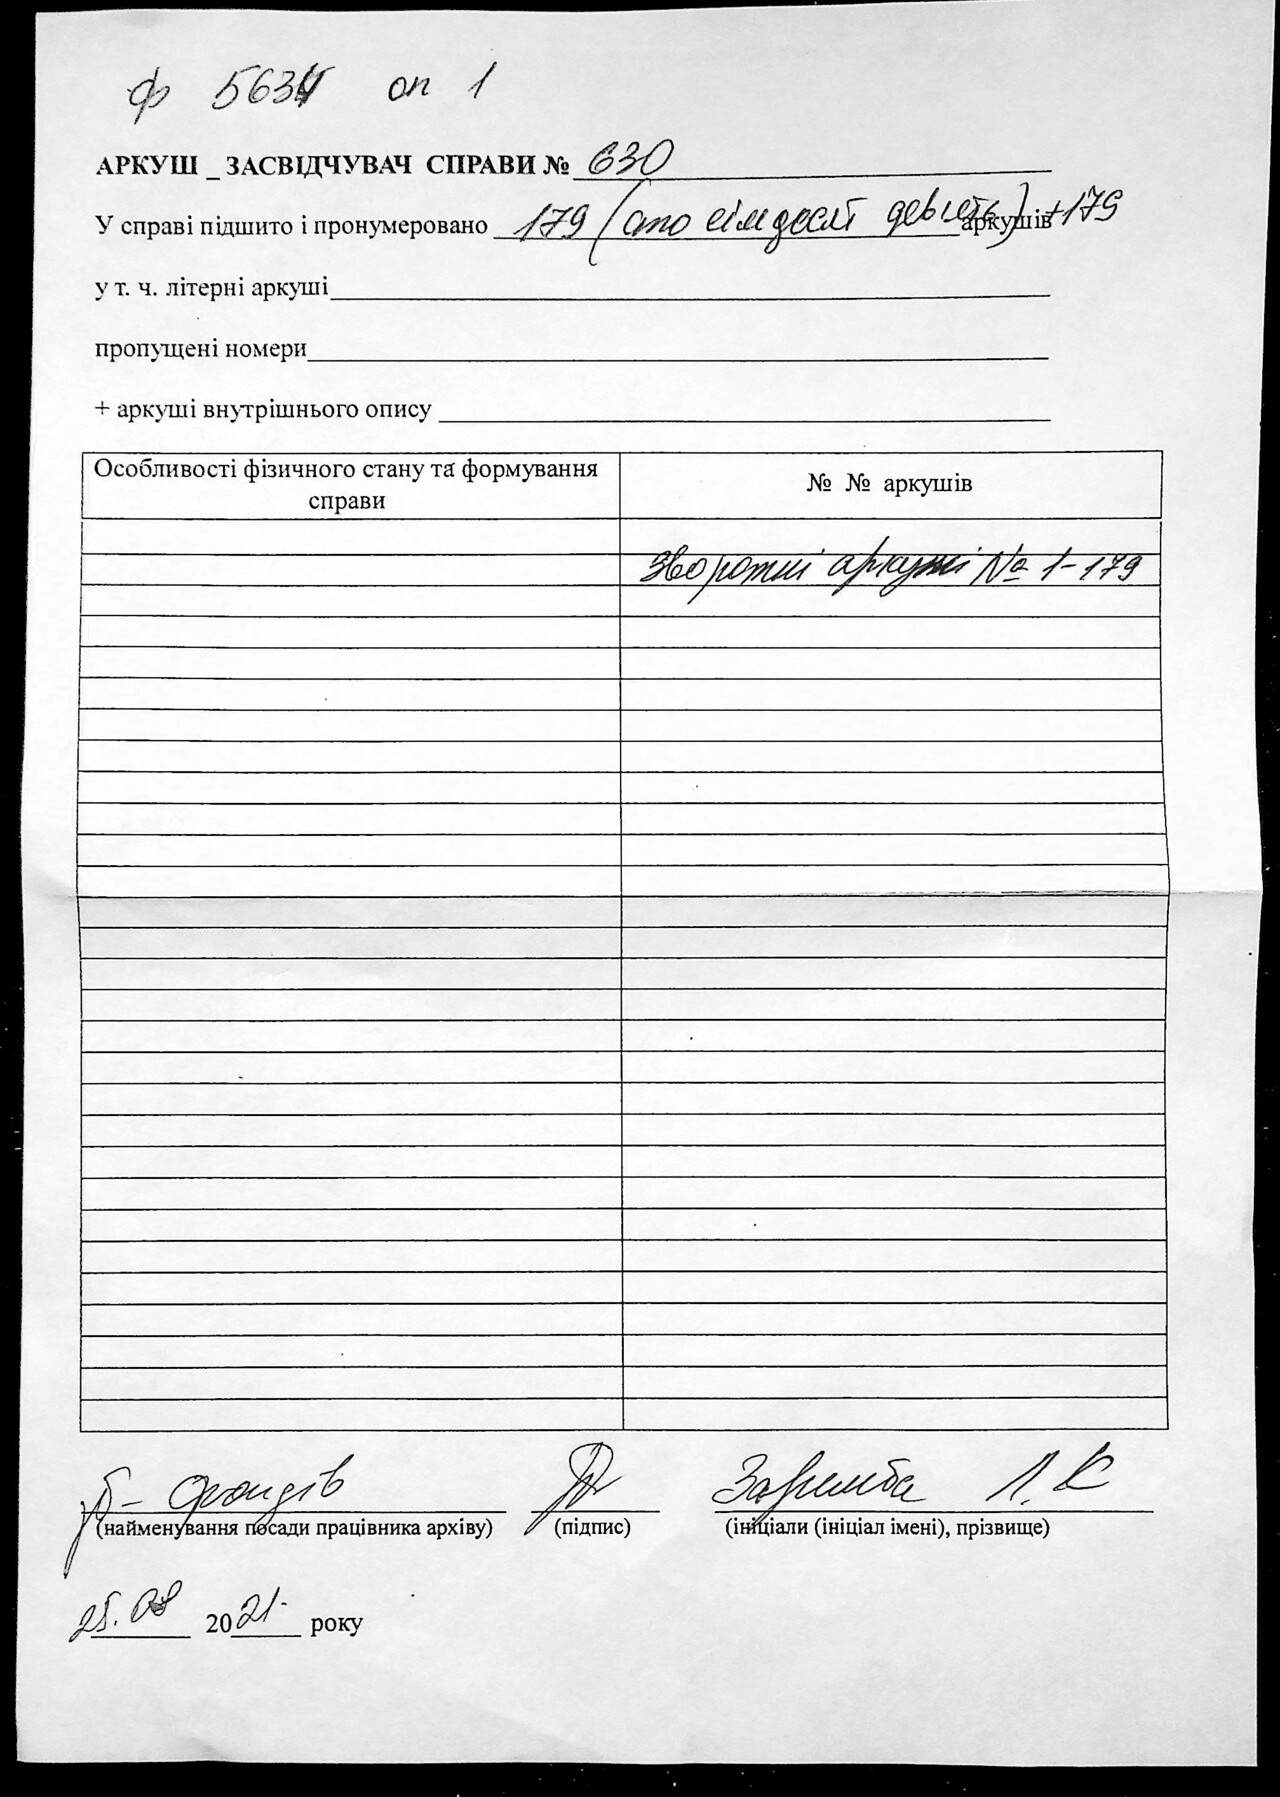 ф 5634 оп 1
АРКУШ _ ЗАСВІДЧУВАЧ СПРАВИ № 630
У справі підшито і пронумеровано 179 (сто сімдесят девять) аркушів +179
у т. ч. літерні аркуші
пропущені номери
+ аркуші внутрішнього опису
Особливості фізичного стану та формування справи
№ № аркушів
Зворотні аркуші № 1-179
фондів
Заремба Л. К
(найменування посади працівника архіву) (підпис) (ініціали (ініціал імені), прізвище)
25.08 2021 року